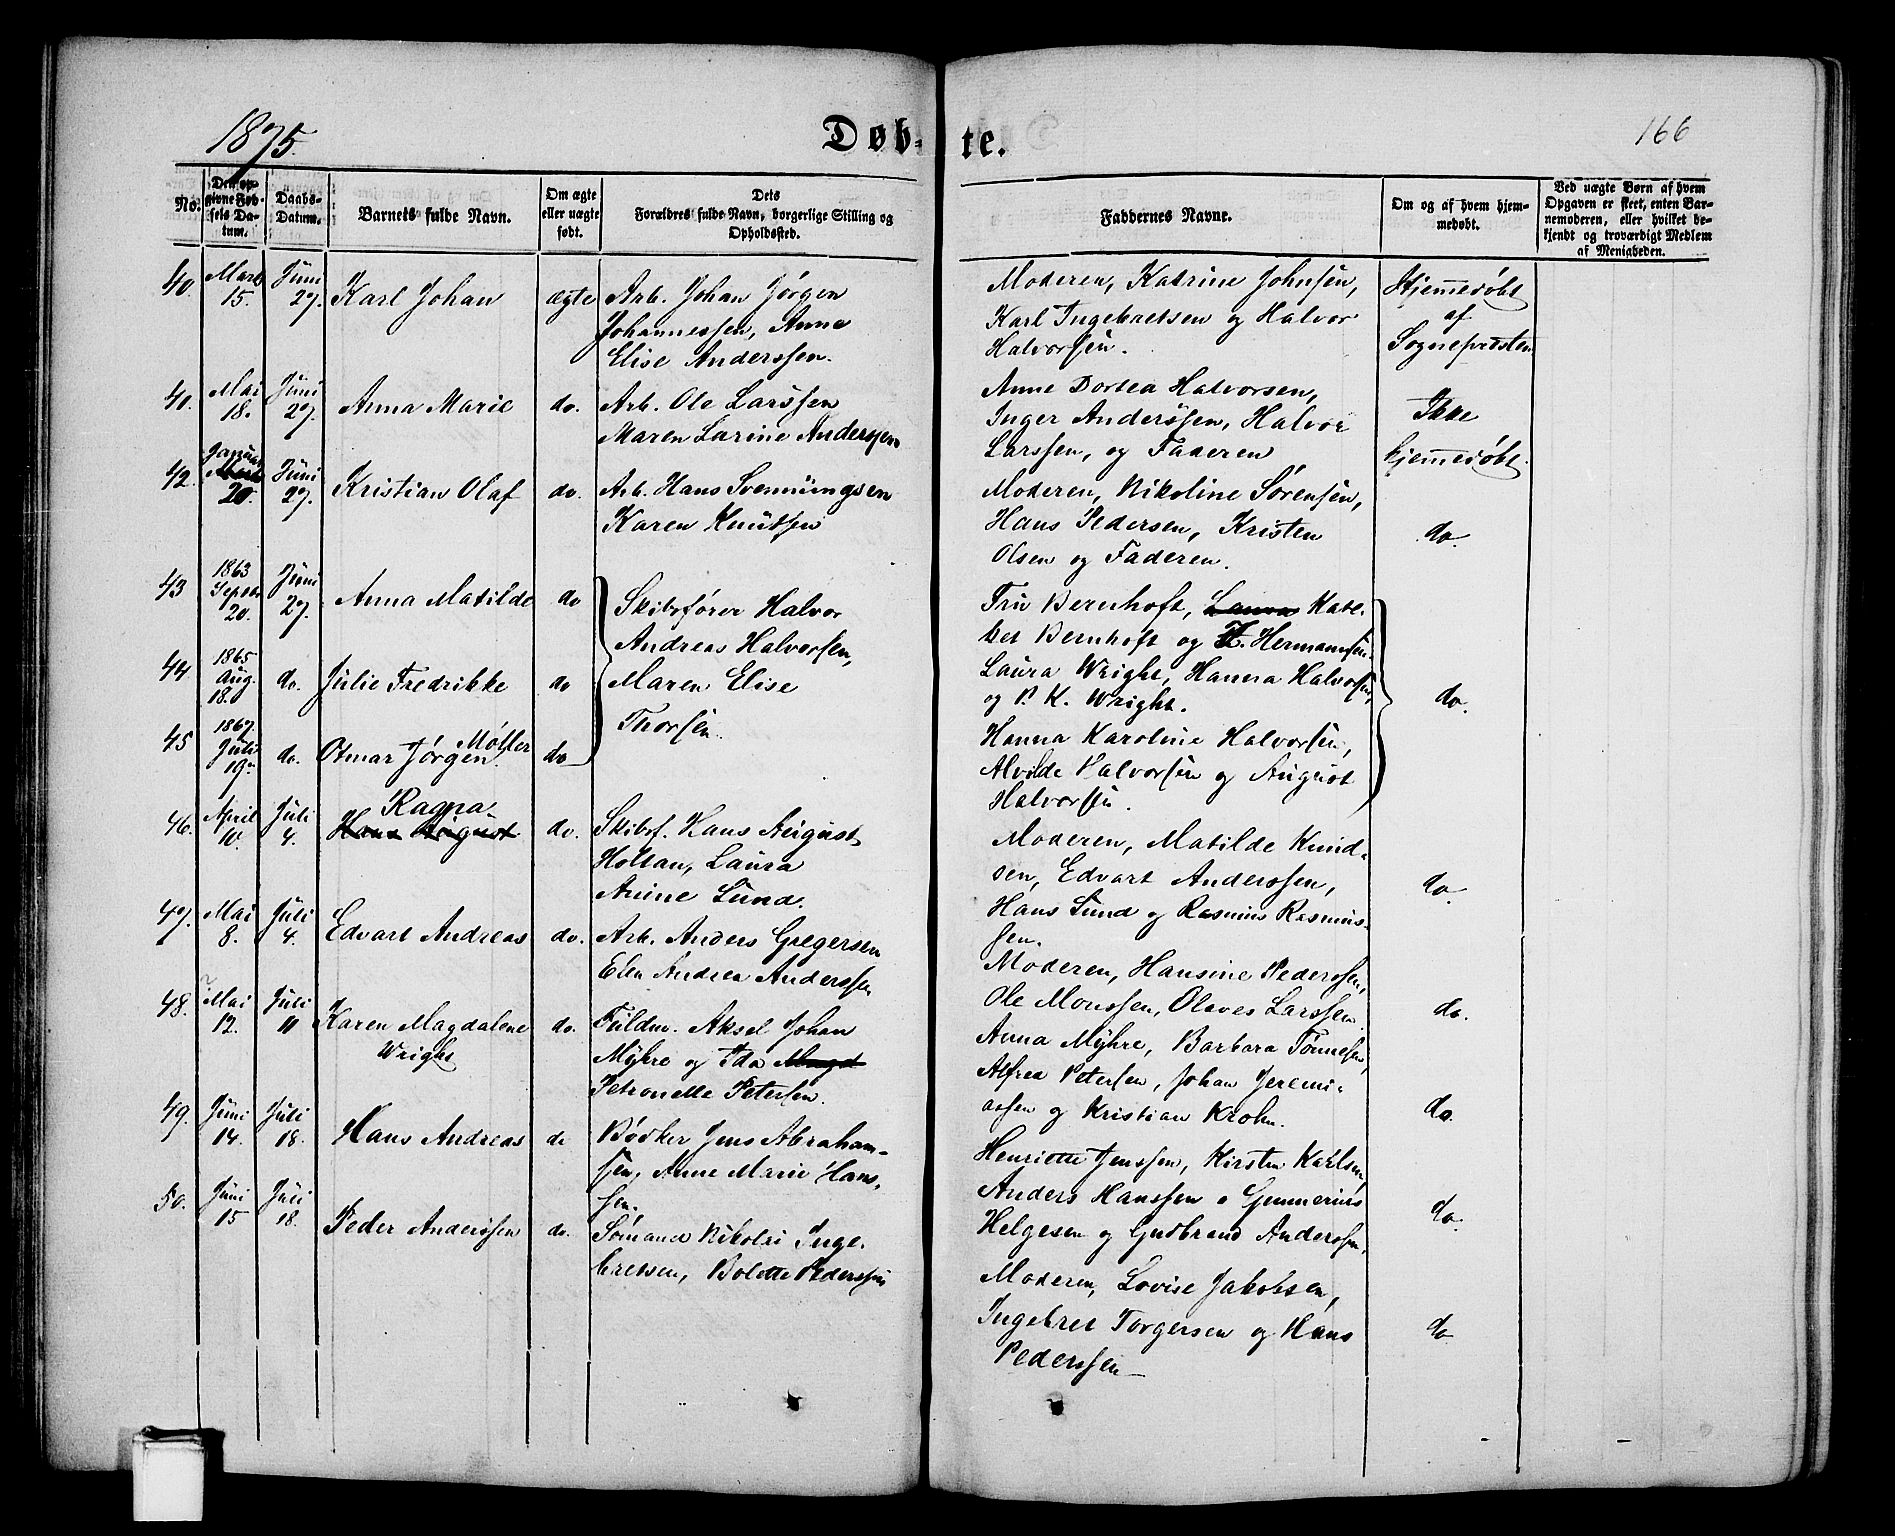 1875.
Døb-te.
166
No.
Den opgivne Fødsels Datum.
Daabs-Datum.
Barnets fulde Navn.
Om ægte eller uægte født.
Dets Forældres fulde Navn, borgerlige Stilling og Opholdssted.
Faddernes Navne.
Om og af hvem hjemmedøbt.
Ved uægte Børn af hvem Opgaven er skeet, enten Barnemoderen, eller hvilket bekjendt og troværdigt Medlem af Menigheden.
40. Marts 15. Juni 27. Karl Johan ægte Arb. Johan Jørgen
Johannessen, Anne
Elise Anderssen.
Moderen, Katrine Johnsen,
Karl Ingebretsen og Halvor
Halvorsen.
Hjemmedøbt
af
Sognepresten
40. Mai 18. Juni 27. Anna Marie do. Arb. Ole Larssen
Maren Larine Anderssen
Anne Dortea Halvorsen,
Inger Anderssen, Halvor
Larssen, og Faderen
Ikke
hjemmedøbt.
42. Januar 20. Juni 27. Kristian Olaf do. Arb. Hans Svennungsen
Karen Knutsen
Moderen, Nikoline Sørensen,
Hans Pedersen, Kristen
Olsen og Faderen.
do.
43 1863 Septbr 20. Juni 27. Anna Matilde do
44 1865 Aug. 18. do. Julie Fredrikke do
45 1867. Juli 19. do. Otmar Jørgen Møller do
Skibsfører Halvor
Andreas Halvorsen,
Maren Elise
Thorsen.
Fru Bernhoft, Laura Kate-
bet Bernhoft og F. Hermannsen.
Laura Wright, Hanna Halvorsen,
og P. K. Wright.
Hanna Karoline Halvorsen,
Alvilde Halvorsen og August
Halvorsen.
do.
46. April 10. Juli 4. Ragna.
Hans August do. Skibsf. Hans August
Holtan, Laura
Anine Lund.
Moderen, Matilde Knud-
sen, Edvart Anderssen,
Hans Lund og Rasmus Rasmus-
sen.
do.
47. Mai 8. Juli 4. Edvart Andreas do. Arb. Anders Gregersen
Elen Andrea Anderssen
Moderen, Hansine Pederssen,
Ole Monssen, Olaves Larssen.
do.
48. Mai 12. Juli 11 Karen Magdalene
Wright do. Fuldm. Aksel Johan
Myhre og Ida Magd
Petronelle Petersen.
Anna Myhre, Barbara Tønnesen,
Alfred Petersen, Johan Jeremi-
assen og Kristian Krohn.
do.
49. Juni 14. Juli 18. Hans Andreas do Bødker Jens Abraham-
sen, Anne Marie Hans-
sen.
Henriette Jenssen, Kirsten Karlsen,
Anders Hanssen o Gunnerius
Helgesen og Gudbrand Anderssen,
do.
50. Juni 15 Juli 18. Peder Anderssen do. Sømand Nikolai Inge-
bretsen, Bolette Pederssen
Moderen, Lovise Jakobsen,
Ingebret Torgersen og Hans
Pederssen
do